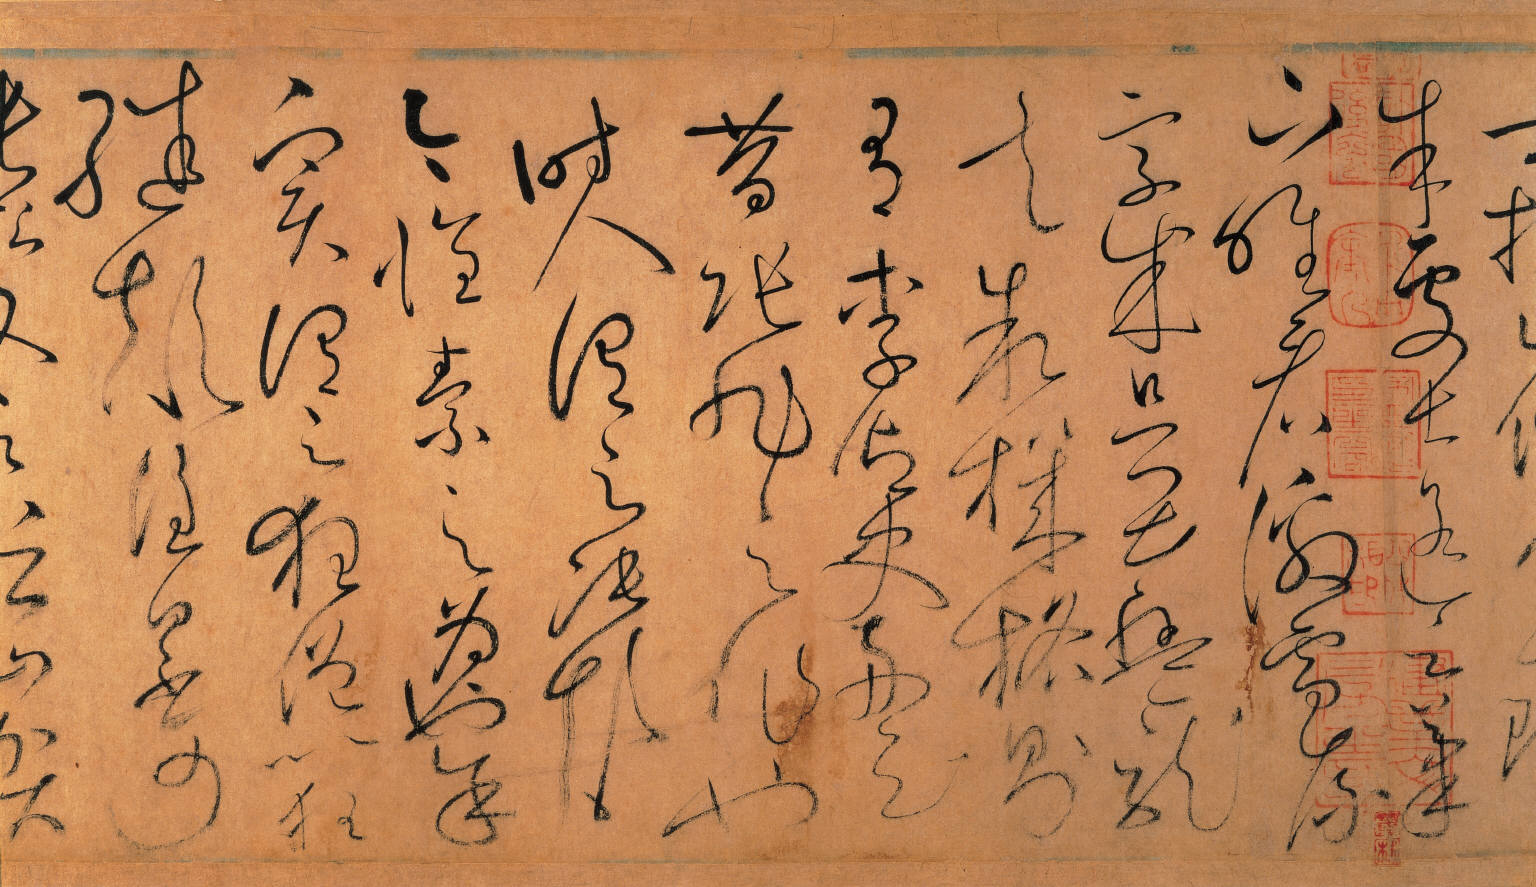 朱處士遙云筆
下唯看激電流
字成只畏盤龍
走敘機格則
有李御史舟云
昔張旭之作也
時人謂之張顛
今懷素之為也余
實謂之狂僧以狂
繼顛誰曰不可
張公又云稽山賀